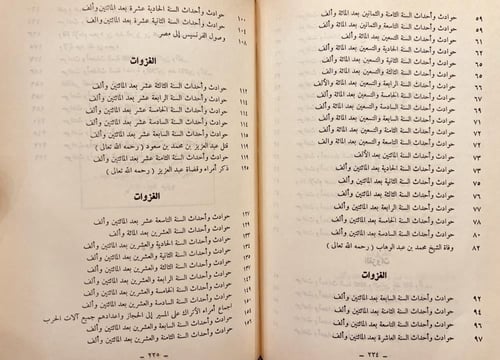 حوادث وأحداث السنة الثامنة والثمانين بعد المائة وألف ٥٩
حوادث وأحداث السنة بعد المائة وألف
حوادث وأحداث السنة والتسعين بعد المائة وألف ٦١
حوادث وأحداث السنة والتسعين بعد المائة وألف
حوادث وأحداث السنة والتسعين بعد المائة وألف
حوادث وأحداث السنة والتسعين بعد المائة وألف
حوادث وأحداث السنة الخامسة والتسعين بعد المائة وألف ٦٧
حوادث وأحداث السنة السادسة والتسعين بعد المائة وألف ٦٩
حوادث وأحداث السنة السابعة والتسعين بعد المائة وألف
حوادث وأحداث السنة الثامنة والتسعين بعد المائة وألف
حوادث وأحداث السنة التاسعة والتسعين بعد المائة وألف
حوادث وأحداث السنة المائتين بعد الألف
حوادث وأحداث السنة الحادية بعد المائتين وألف
حوادث وأحداث السنة الثانية بعد المائتين وألف
حوادث وأحداث السنة الثالثة بعد المائتين وألف
حوادث وأحداث السنة الرابعة بعد المائتين وألف
حوادث وأحداث السنة الخامسة بعد المائتين وألف
حوادث وأحداث السنة السادسة بعد المائتين وألف ٨٠
وفاة الشيخ محمد بن عبد الوهاب ( رحمه الله تعالى ) ٨٢
الغزوات
حوادث وأحداث السنة السابعة بعد المائتين وألف ٩٢
حوادث وأحداث السنة الثامنة بعد المائتين وألف ٩٤
حوادث وأحداث السنة التاسعة بعد المائتين وألف ٩٦
حوادث وأحداث السنة العاشرة بعد المائتين وألف ٩٧
- ٢٣٤ -
حوادث وأحداث السنة الحادية عشرة بعد المائتين وألف ١٠٠
حوادث وأحداث السنة الثانية عشرة بعد المائتين وألف
وصول الفرنسيس إلى مصر ١٠٨
الغزوات
حوادث وأحداث السنة الثالثة عشر بعد المائتين وألف ١١٢
حوادث وأحداث السنة الرابعة عشر بعد المائتين وألف ١١٤
حوادث وأحداث السنة الخامسة عشر بعد المائتين وألف ١١٤
حوادث وأحداث السنة السادسة عشر بعد المائتين وألف
حوادث وأحداث السنة السابعة عشر بعد المائتين وألف
قتل عبد العزيز بن محمد بن سعود ( رحمه الله تعالى )
حوادث وأحداث السنة الثامنة عشر بعد المائتين وألف ١١٩
ذكر أمراء وقضاة عبد العزيز ( رحمه الله تعالى ) ١٢٥
الغزوات
حوادث وأحداث السنة التاسعة عشر بعد المائتين وألف ١٢٧
حوادث وأحداث السنة العشرين بعد المائة وألف
حوادث وأحداث السنة الحادية والعشرين بعد المائتين وألف
حوادث وأحداث السنة الثانية والعشرين بعد المائتين وألف
حوادث وأحداث السنة الثالثة والعشرين بعد المائتين وألف
حوادث وأحداث السنة الرابعة والعشرين بعد المائتين وألف
حوادث وأحداث السنة الخامسة والعشرين بعد المائتين وألف
حوادث وأحداث السنة السادسة والعشرين بعد المائتين وألف
اجتماع أمراء الأتراك على المسير إلى الحجاز واعدادهم جميع آلات الحرب
حوادث وأحداث السنة السابعة والعشرين بعد المائتين وألف
- ٢٣٥ -